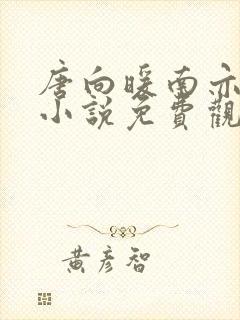 唐向暖南亦
小說免費觀
黃彥智